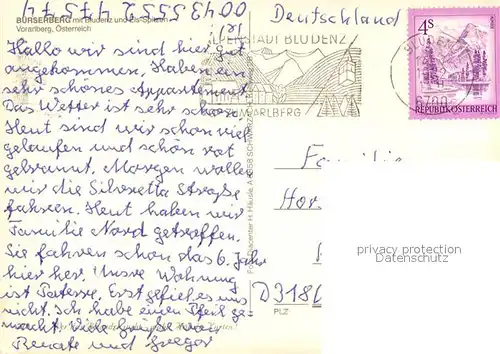 0043 5552 47574
Deutschland
BÜRSERBERG mit Bludenz und Els-Spitzen
Vorarlberg, Österreich
Hallo wir sind hier gut
angekommen. Haben ein
sehr schönes Appartement
Das Wetter ist sehr schön.
Heut sind wir schon viel
gelaufen und schön rot
gebrannt. Morgen wollen
wir die Silvretta Straße
fahren. Heut haben wir
Familie Nord getroffen.
Sie fahren schon das 6. Jahr
hier her. Unsre Wohnung
ist Paterre. Erst gefiel es uns
nicht. Ich habe einen Pfeil ge-
macht Viele Grüße von
Renate und Gregor
ALPENSTADT BLUDENZ
VORARLBERG
6700
4 S
REPUBLIK ÖSTERREICH
Familie
Hor
D3180
PLZ
privacy protection
DATENSCHUTZ